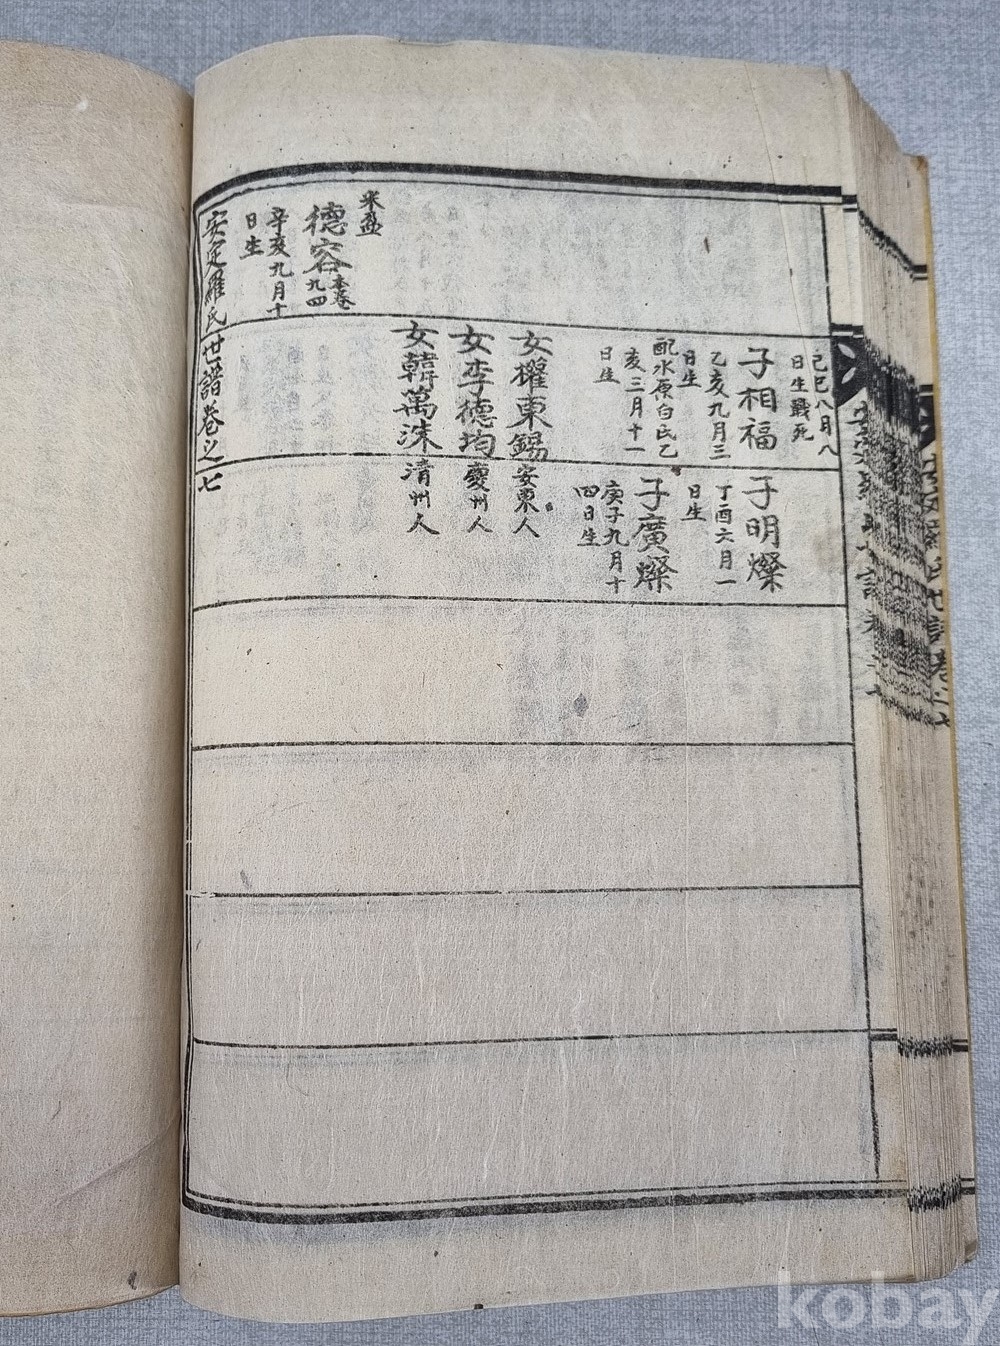 己巳八月八
日生戰死
子相福
乙亥九月三
日生
配水原白氏乙
亥三月十一
日生
女權東錫安東人
女李德均慶州人
女韓萬洙清州人
子明燦
丁酉六月一
日生
子廣燦
庚子九月十
四日生
采盈
德容本卷九四
辛亥九月十
日生
安定羅氏世譜卷之七
kobay